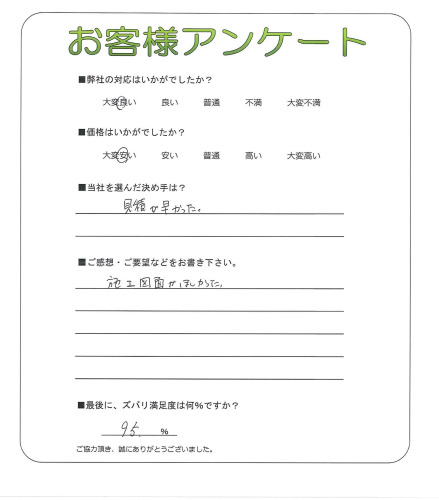 お客様アンケート
■弊社の対応はいかがでしたか?
大変良い 良い 普通 不満 大変不満
■価格はいかがでしたか?
大変安い 安い 普通 高い 大変高い
■当社を選んだ決め手は?
見積が早かった。
■ご感想・ご要望などをお書き下さい。
施工図面がほしかった。
■最後に、ズバリ満足度は何%ですか?
95. %
ご協力頂き、誠にありがとうございました。